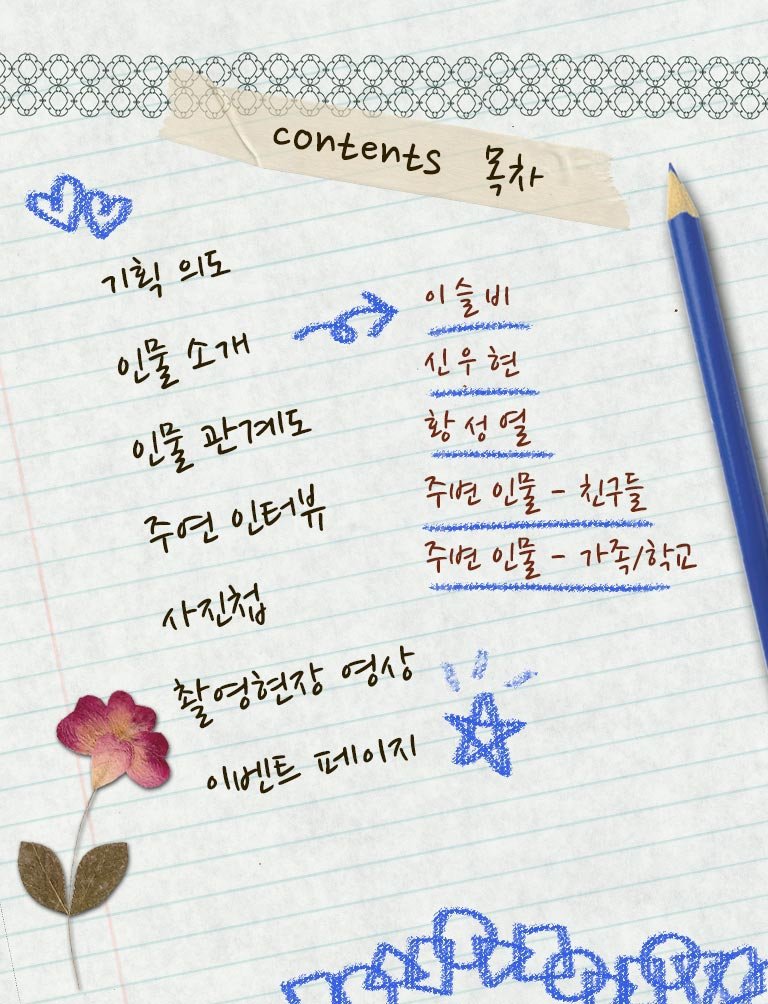 contents 목차
기획 의도
인물 소개
이슬비
신우현
황성열
주변 인물 - 친구들
주변 인물 - 가족/학교
인물 관계도
주연 인터뷰
사진첩
촬영현장 영상
이벤트 페이지